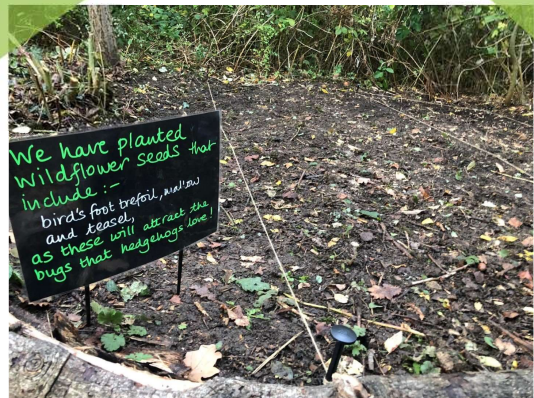 We have planted
Wildflower seeds that
include :-
bird's foot trefoil, mallow
and teasel,
as these will attract the
bugs that hedgehogs love!